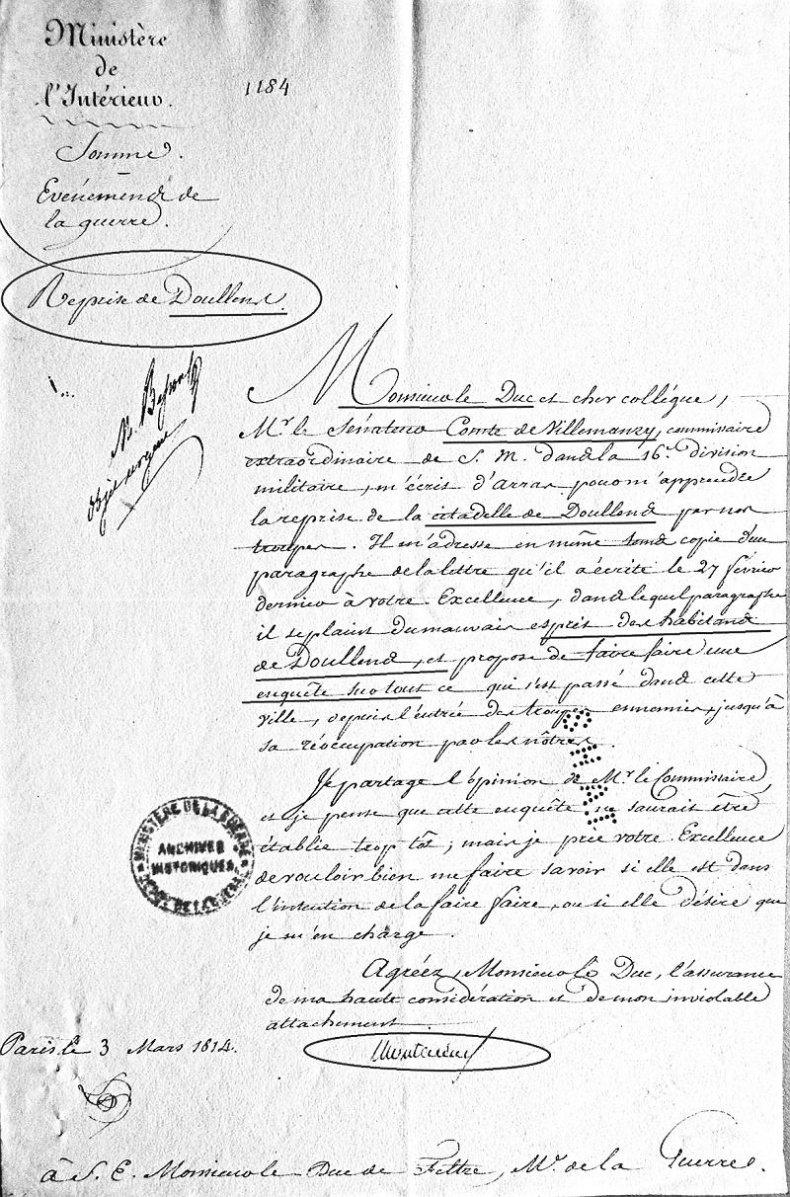 Ministère
de
l'Intérieur.
1184
Somme.
Evénemens de
la guerre.
Reprise de Doullens.
M.
Monsieur le Duc et cher collègue,
Mr. le Sénateur Comte de Villemanzy, commissaire
extraordinaire de S. M. dans la 16e. division
militaire, m'écrit d'Arras pour m'apprendre
la reprise de la citadelle de Doullens par nos
troupes. Il m'adresse en même tems copie d'un
paragraphe de la lettre qu'il a écrite le 27 février
dernier à votre Excellence, dans lequel paragraphe
il se plaint du mauvais esprit des habitans
de Doullens, et propose de faire faire une
enquête sur tout ce qui s'est passé dans cette
ville, depuis l'entrée des troupes ennemies, jusqu'à
sa réoccupation par les nôtres.
Je partage l'opinion de Mr. le Commissaire,
et je pense que cette enquête ne saurait être
établie trop tôt; mais je prie votre Excellence
de vouloir bien me faire savoir si elle est dans
l'intention de la faire faire, ou si elle désire que
je m'en charge.
Agréez, Monsieur le Duc, l'assurance
de ma haute considération et de mon inviolable
attachement.
Paris, le 3 Mars 1814.
Montalivet
à S. E. Monsieur le Duc de Feltre, Mre. de la Guerre.
MINISTÈRE DE LA GUERRE
ARCHIVES
HISTORIQUES